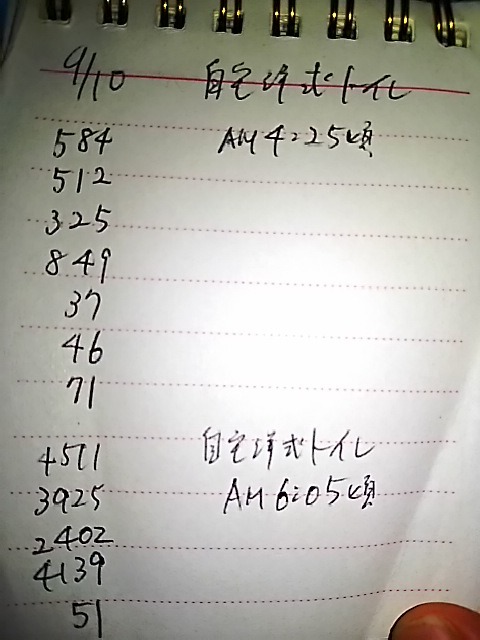 9/10 自宅洋式トイレ
584 AM4:25頃
512
325
849
37
46
71
4511 自宅洋式トイレ
3925 AM6:05頃
2402
4139
51